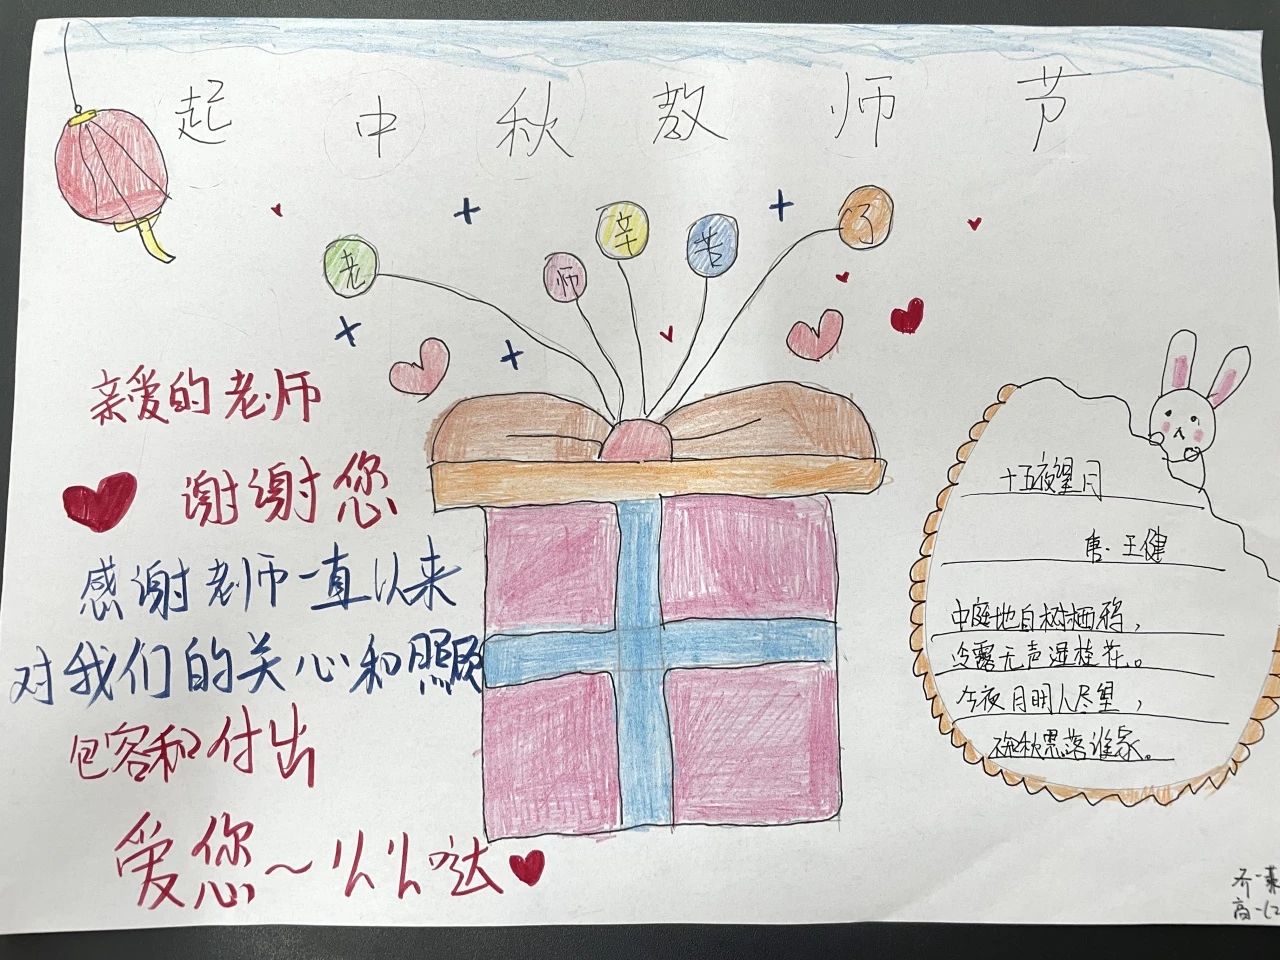 起中秋教师节
老师辛苦了
亲爱的老师
谢谢您
感谢老师一直以来
对我们的关心和照顾
包容和付出
爱您~么么哒
十五夜望月
唐·王健
中庭地白树栖鸦，
冷露无声湿桂花。
今夜月明人尽望，
不知秋思落谁家。